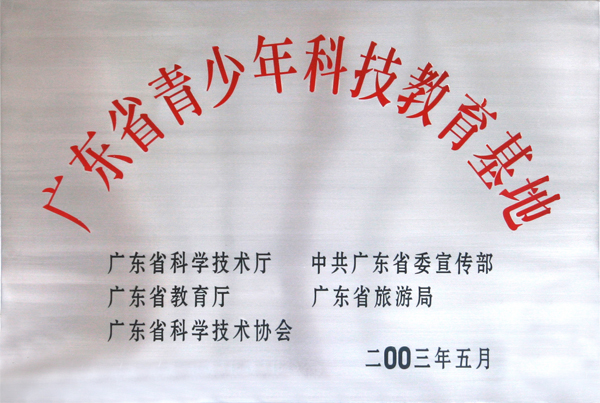 广东省青少年科技教育基地
广东省科学技术厅 中共广东省委宣传部
广东省教育厅 广东省旅游局
广东省科学技术协会
二00三年五月